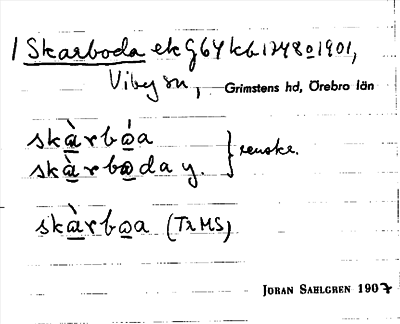 1 Skarboda ek G64 kb 1748 o 1901,
Viby sn, Grimstens hd, Örebro län
skàrbo̊́a
skàrbωda y. } renske.
skàrbωa (TxMS)
JÖRAN SAHLGREN 1907